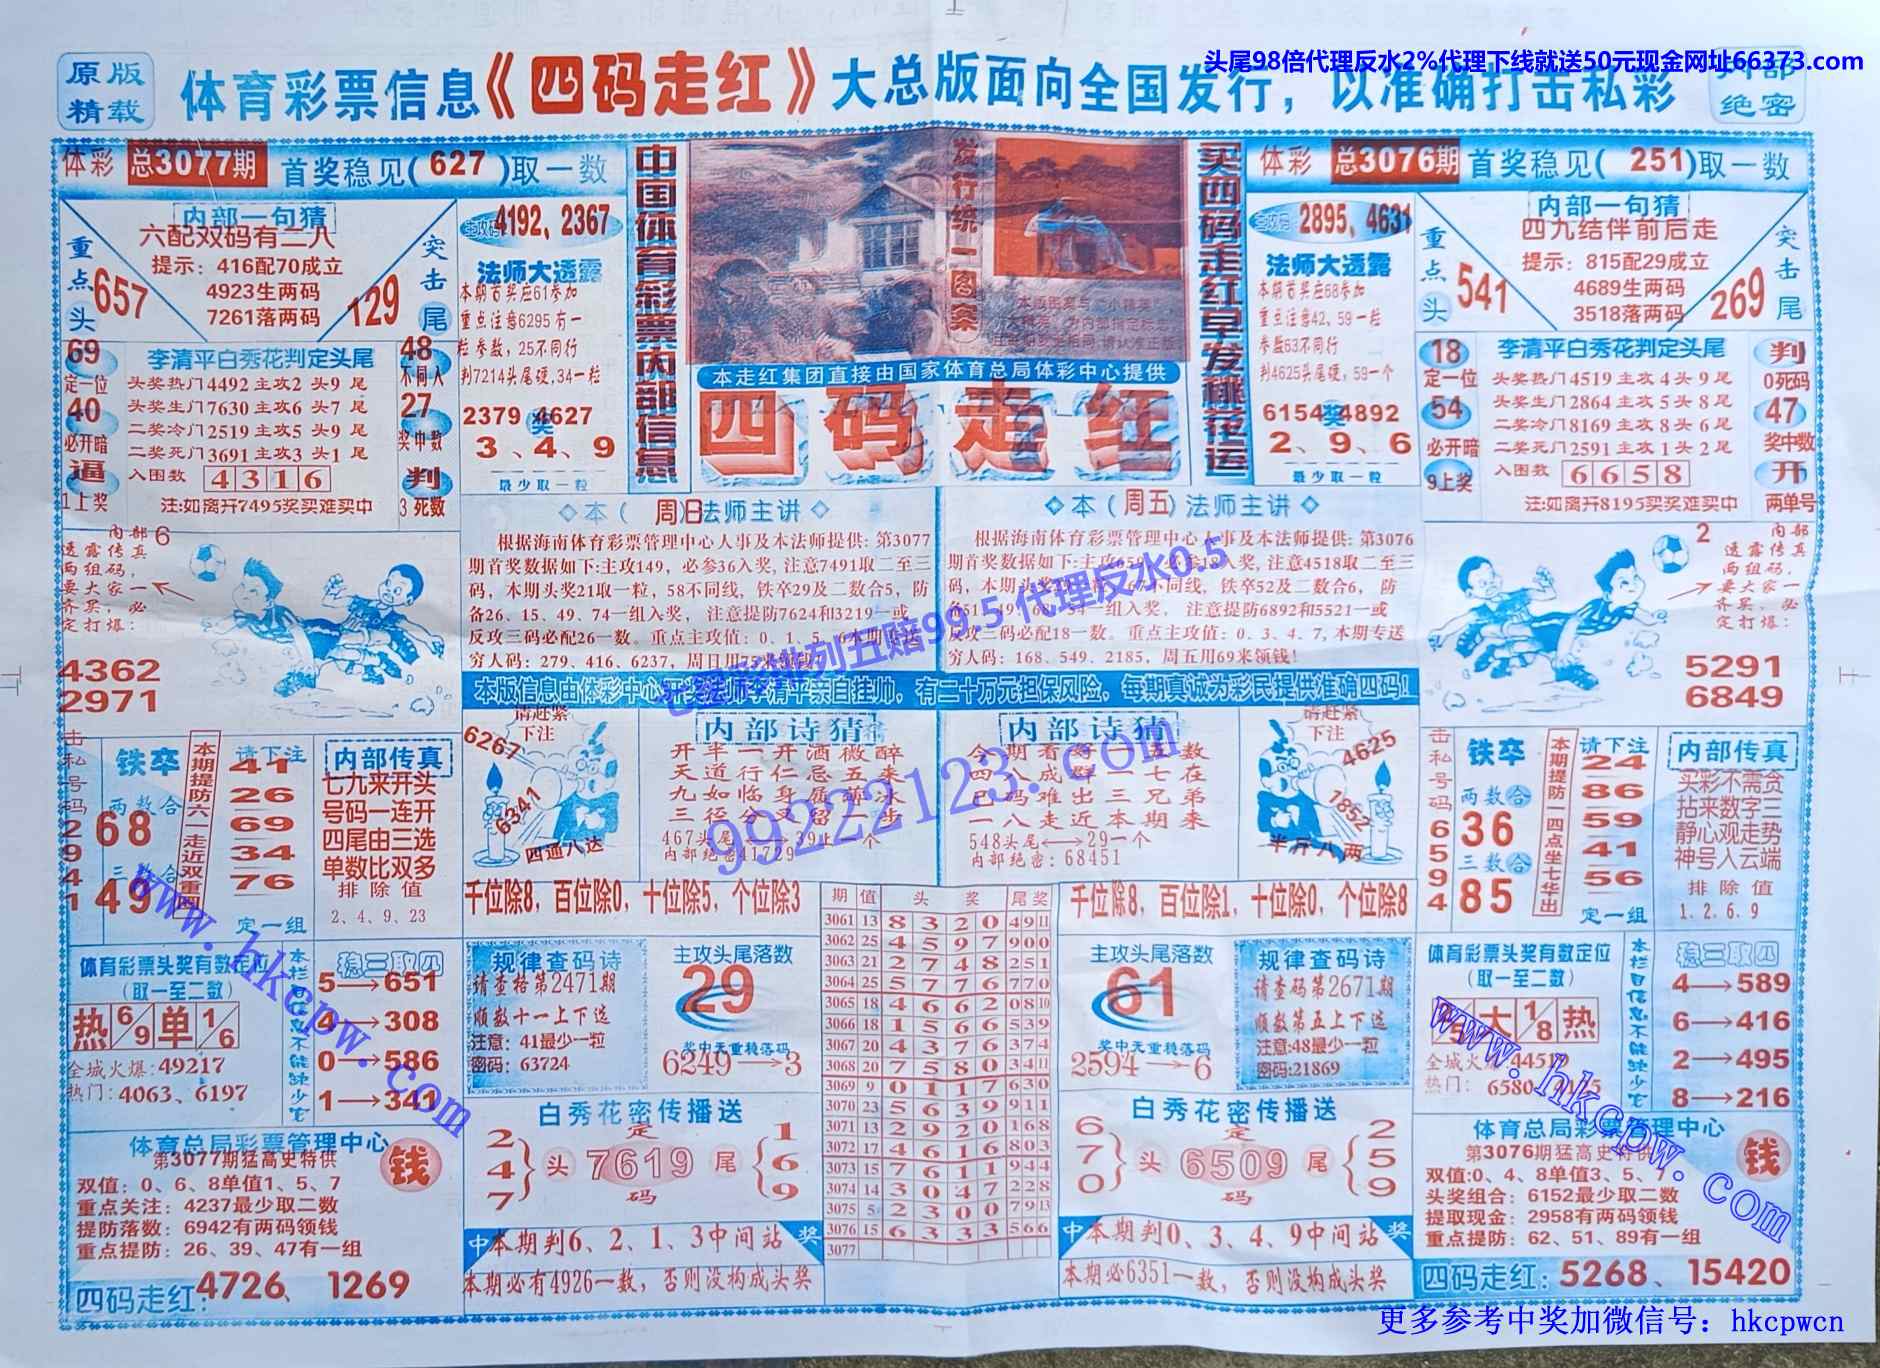 头尾98倍代理反水2%代理下线就送50元现金网址66373.com
原版
精载
体育彩票信息《四码走红》大总版面向全国发行，以准确打击私彩
绝密
体彩 总3077期 首奖稳见(627)取一数
内部一句猜
六配双码有二八
提示：416配70成立
4923生两码
7261落两码
重点头
657
突击尾
129
主攻码 4192、2367
法师大透露
本期首奖应61参加
重点注意6295有一
粒参数，25不同行
判7214头尾硬,34一粒
2379奖4627
3、4、9
最少取一粒
69
定一位
40
必开暗
逼
1上奖
李清平白秀花判定头尾
头奖热门4492主攻2头9尾
头奖生门7630主攻6头7尾
二奖冷门2519主攻5头9尾
二奖死门3691主攻3头1尾
入围数 4316
注:如离开7495奖买难买中
48
不同入
27
奖中数
判
3死数
中国体育彩票内部信息
发行统一图案
本走红集团直接由国家体育总局体彩中心提供
四码走红
买四码走红早发桃花运
体彩 总3076期 首奖稳见(251)取一数
主攻码 2895、4631
法师大透露
本期首奖应68参加
重点注意42、59一粒
参数63不同行
判4625头尾硬，59一个
6154奖4892
2、9、6
最少取一粒
内部一句猜
四九结伴前后走
提示：815配29成立
4689生两码
3518落两码
重点头
541
突击尾
269
18
定一位
54
必开暗
9上奖
李清平白秀花判定头尾
头奖热门4519主攻4头9尾
头奖生门2864主攻5头8尾
二奖冷门8169主攻8头6尾
二奖死门2591主攻1头2尾
入围数 6658
注:如离开8195买奖难买中
判
0死码
47
奖中数
开
两单号
内部 6
透露传真
两组码，
要大家一
齐买，必
定打爆：
4362
2971
◇本(周日)法师主讲◇
根据海南体育彩票管理中心人事及本法师提供：第3077
期首奖数据如下:主攻149，必参36入奖,注意7491取二至三
码，本期头奖21取一粒，58不同线，铁卒29及二数合5，防
备26、15、49、74一组入奖，注意提防7624和3219一或
反攻三码必配26一数。重点主攻值：0、1、5、6本期专送
穷人码：279、416、6237，周日用75来领钱
◇本(周五)法师主讲◇
根据海南体育彩票管理中心人事及本法师提供：第3076
注意4518取二至三
铁卒52及二数合6，防
一组入奖，注意提防6892和5521一或
反攻三码必配18一数。重点主攻值：0、3、4、7,本期专送
穷人码：168、549、2185，周五用69来领钱!
七星彩排列五赔99.5 代理反水0.5
2 内部
透露传真
两组码，
要大家一
齐买，必
定打爆：
5291
6849
本版信息由体彩中心开彩法师李清平亲自挂帅，有二十万元担保风险，每期真诚为彩民提供准确四码！
击私号码
29
41
铁卒
两数合
68
三数合
49
本期提防六一走近双重四
请下注
41
26
69
34
76
定一组
内部传真
七九来开头
号码一连开
四尾由三选
单数比双多
排除值
2、4、9、23
请赶紧
下注
6267
6341
四通八达
内部诗猜
开半一开酒微醉
天道行仁忌五来
九如临身履薄冰
三径分叉留一步
467头尾⟷39止一个
内部绝密41729
内部诗猜
四八成群一七在
巴码难出三兄弟
一八走近本期来
548头尾⟷29一个
内部绝密：68451
99222123.com
请赶紧
下注
4625
1852
半斤八两
击私号码
65
94
铁卒
两数合
36
三数合
85
本期提防一四点坐七华出
请下注
24
86
59
41
56
定一组
内部传真
买彩不需贪
拈来数字三
静心观走势
神号入云端
排除值
1、2、6、9
千位除8，百位除0，十位除5，个位除3
千位除8，百位除1，十位除0，个位除8
体育彩票头奖有数定位
(取一至二数)
热 6/9 单 1/6
全城火爆:49217
热门:4063、6197
本栏目信息不能缺少它
稳三取四
5→651
4→308
0→586
1→341
规律查码诗
请查格第2471期
顺数十一上下选
注意：41最少一粒
密码：63724
主攻头尾落数
29
奖中无重稳落码
6249→3
期 值 头 奖 尾奖
3061 13 8 3 2 0 4 9 11
3062 25 4 5 9 7 9 0 0
3063 21 2 7 4 8 2 5 1
3064 25 5 7 7 6 7 7 0
3065 18 4 6 6 2 0 8 10
3066 18 1 5 6 6 5 3 9
3067 20 4 3 7 6 3 7 4
3068 20 7 5 8 0 3 4 11
3069 9 0 1 1 7 6 3 0
3070 23 5 6 3 9 9 1 1
3071 13 2 9 2 0 1 6 8
3072 17 4 6 1 6 8 0 3
3073 15 7 6 1 1 9 4 4
3074 14 3 0 4 7 2 2 8
3075 5 2 3 0 0 7 9 13
3076 15 6 3 3 3 5 6 6
3077
主攻头尾落数
61
奖中无重稳落码
2594→6
规律查码诗
请查码第2671期
顺数第五上下选
注意:48最少一粒
密码:21869
体育彩票头奖有数定位
(取一至二数)
大 1/8 热
全城火爆:44519
热门：6580
本栏目信息不能缺少它
稳三取四
4→589
6→416
2→495
8→216
www.hkcpw.com
www.hkcpw.com
体育总局彩票管理中心
第3077期猛高史特供
钱
双值：0、6、8单值1、5、7
重点关注：4237最少取二数
提防落数：6942有两码领钱
重点提防：26、39、47有一组
四码走红:4726、1269
白秀花密传播送
2
4
7
头
定
7619
码
尾
1
6
9
中 本期判6、2、1、3中间站 奖
本期必有4926一数，否则没构成头奖
白秀花密传播送
6
7
0
头
定
6509
码
尾
2
5
9
中 本期判0、3、4、9中间站 奖
本期必6351一数，否则没构成头奖
体育总局彩票管理中心
第3076期猛高史特供
钱
双值:0、4、8单值3、5、7
头奖组合：6152最少取二数
提取现金：2958有两码领钱
重点提防：62、51、89有一组
四码走红:5268、15420
更多参考中奖加微信号：hkcpwcn